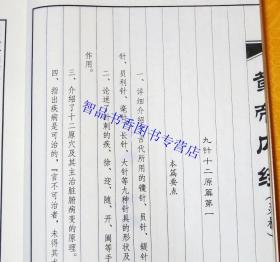 黄帝内经
九针十二原篇第一
本篇要点
一、详细介绍了古代所用的镵针、员针、鍉针
针、员利针、毫针、长针、大针等九种针具的形状及
二、论述了针刺的疾、徐、迎、随、开、阖等手
作用。
三、介绍了十二原穴及其主治脏腑病变的原理。
四、指出疾病是可治的，“言不可治者，未得其
智品书香图书专卖店
www.zhipinshuxiang.com